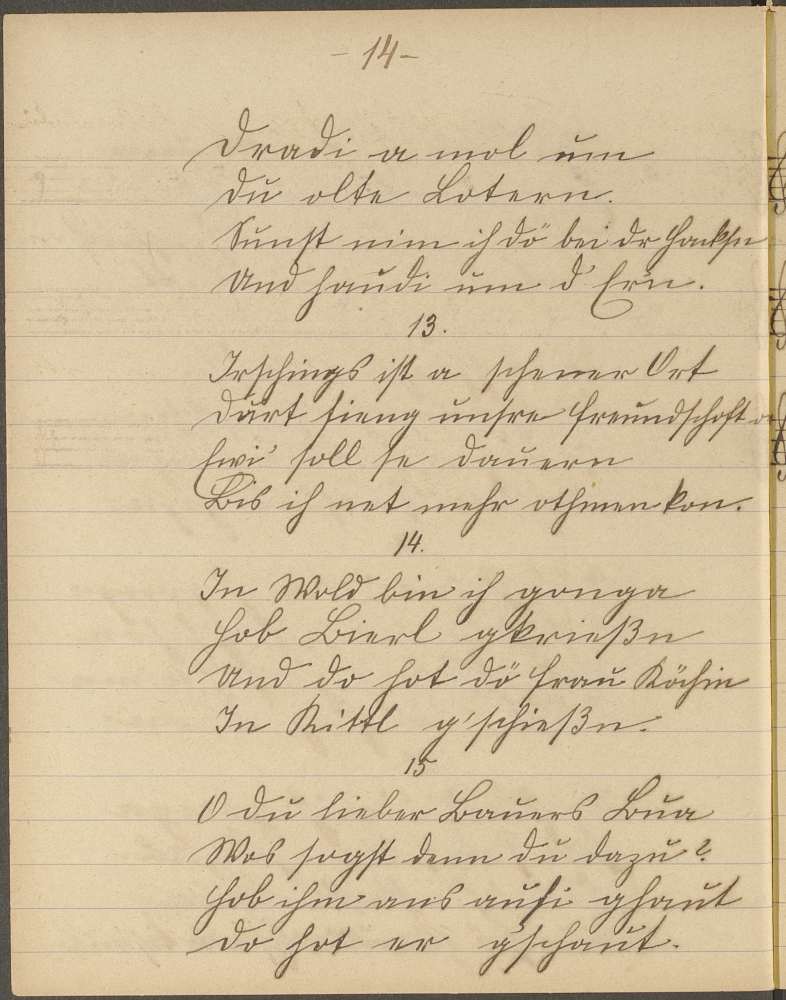 - 14 -
Dradi a mol um
Du olte Lotern.
Sunst nim ih dö bei dr Hacksn
Und haudi um d' Ern.
13.
Irschings ist a schener Ort
Durt fieng unsre Freundschoft
Ewi' soll se dauern
Bis ih net mehr othmen kon.
14.
In Wold bin ih gonga
Hob Bierl gkrießn
Und do hot dö Frau Köchin
In Kittl g'schießn.
15
O du lieber Bauers Bua
Wos sogst denn du dazu?
Hob ihm ans aufi ghaut
Do hot er g'schaut.